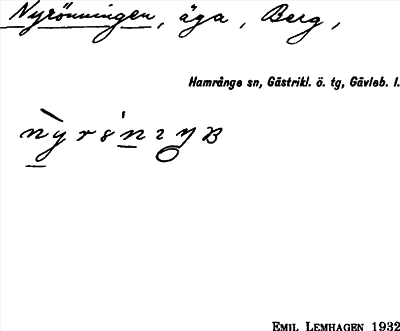 Nyrönningen, äga, Berg,
Hamrånge sn, Gästrikl. ö. tg, Gävleb. l.
EMIL LEMHAGEN 1932